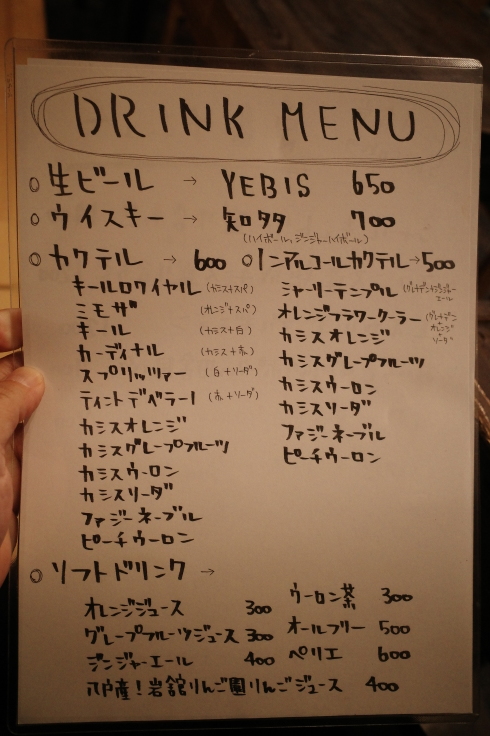 DRINK MENU
○生ビール → YEBIS 650
○ウイスキー → 知多 700
(ハイボール、ジンジャーハイボール)
○カクテル → 600
キールロワイヤル (カシス+スパ)
ミモザ (オレンジ+スパ)
キール (カシス+白)
カーディナル (カシス+赤)
スプリッツァー (白+ソーダ)
ティントデベラーノ (赤+ソーダ)
カシスオレンジ
カシスグレープフルーツ
カシスウーロン
カシスソーダ
ファジーネーブル
ピーチウーロン
○ノンアルコールカクテル → 500
シャーリーテンプル (グレナデン+ジンジャーエール)
オレンジフラワークーラー (グレナデン オレンジ ソーダ)
カシスオレンジ
カシスグレープフルーツ
カシスウーロン
カシスソーダ
ファジーネーブル
ピーチウーロン
○ソフトドリンク →
オレンジジュース 300
グレープフルーツジュース 300
ジンジャーエール 400
ウーロン茶 300
オールフリー 500
ペリエ 600
八戸産!岩舘りんご園りんごジュース 400